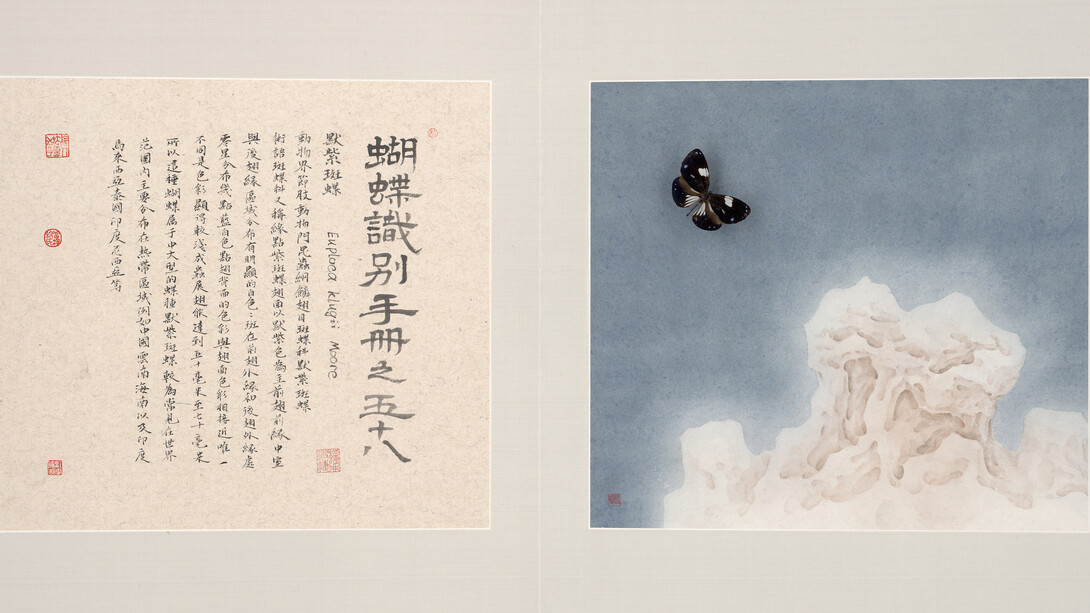 蝴蝶識别手冊之五十八
默紫斑蝶 Euploea klugii Moore
動物界節肢動物門昆蟲綱鱗翅目斑蝶科默紫斑蝶
術語斑蝶科又稱緣點紫斑蝶翅面以默紫色為主前翅前緣中室
與後翅緣區域分布有明顯的白色〻斑在前翅外緣和後翅外緣處
零星分布幾點藍白色點翅背面的色彩與翅面色彩相接近唯一
不同是色彩顯得較淺成蟲展翅能達到五十毫米至七十毫米
所以這種蝴蝶屬于中大型的蝶種默紫斑蝶較為常見在世界
范圍内主要分布在熱帶區域例如中國雲南海南以及印度
馬來西亞泰國印度尼西亞等